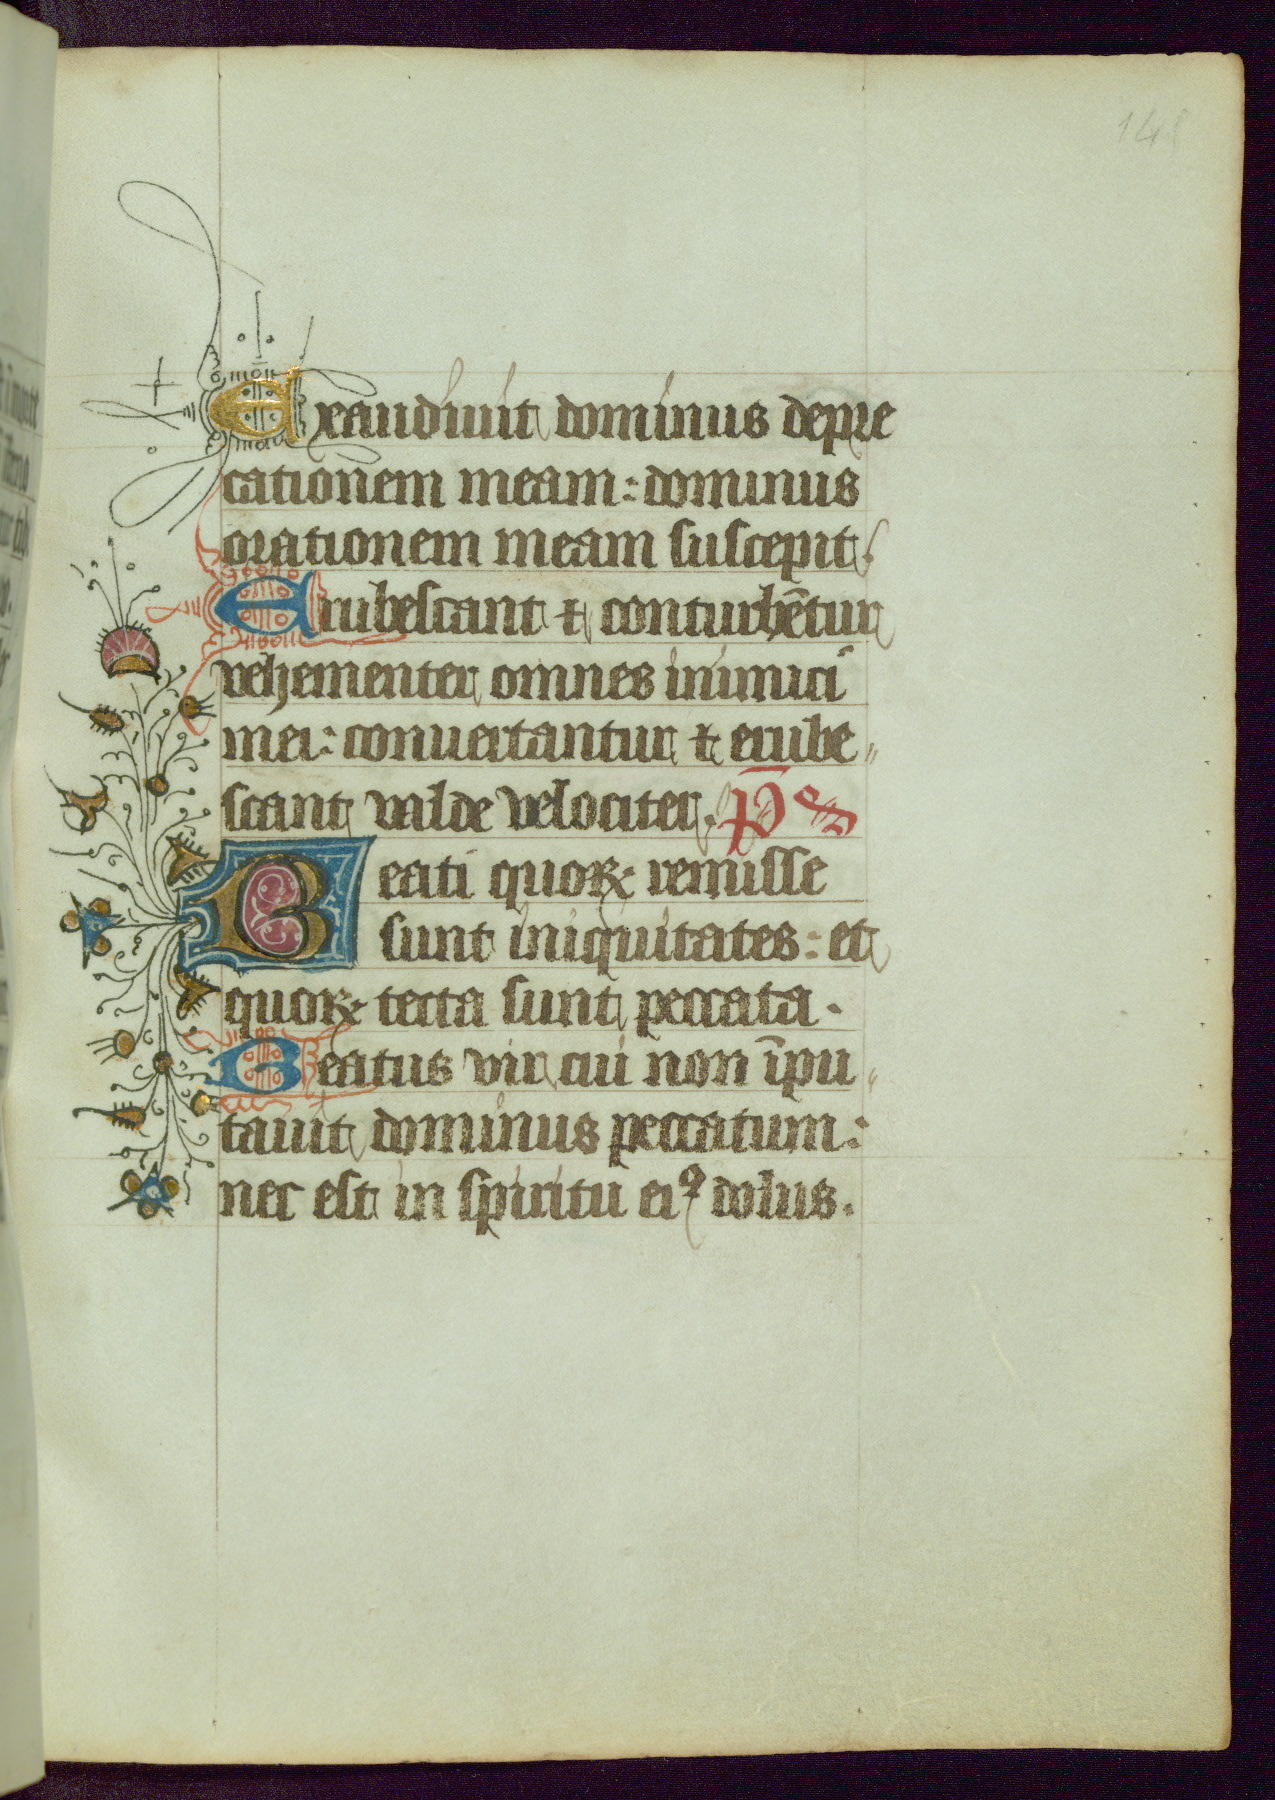 148
Exaudiuit dominus depre
cationem meam: dominus
orationem meam suscepit.
Erubescant & conturbētur
vehementer omnes inimici
mei: conuertantur & erube〃
scant valde velociter. p̄s
Beati quoꝝ remisse
sunt iniquitates: et
quoꝝ tecta sunt peccata.
Beatus vir cui non īpu〃
tauit dominus peccatum:
nec est in spiritu eiꝰ dolus.